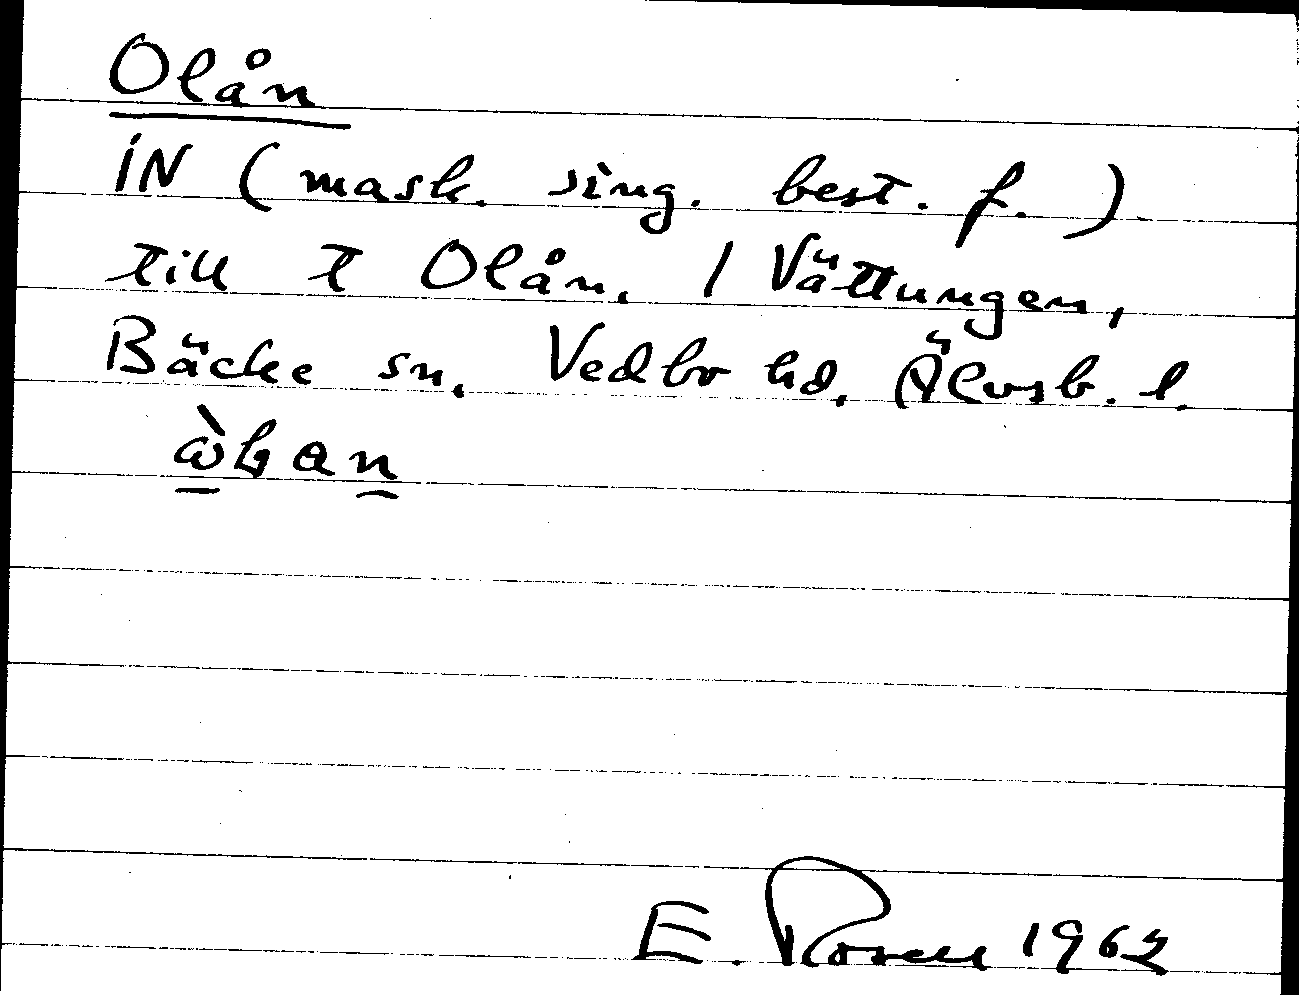 Olån
iN (mask. sing. best. f.)
till t Olån, / Vättungen,
Bäcke sn, Vedbo hd, Älvsb. l.
E. Rosen 1962